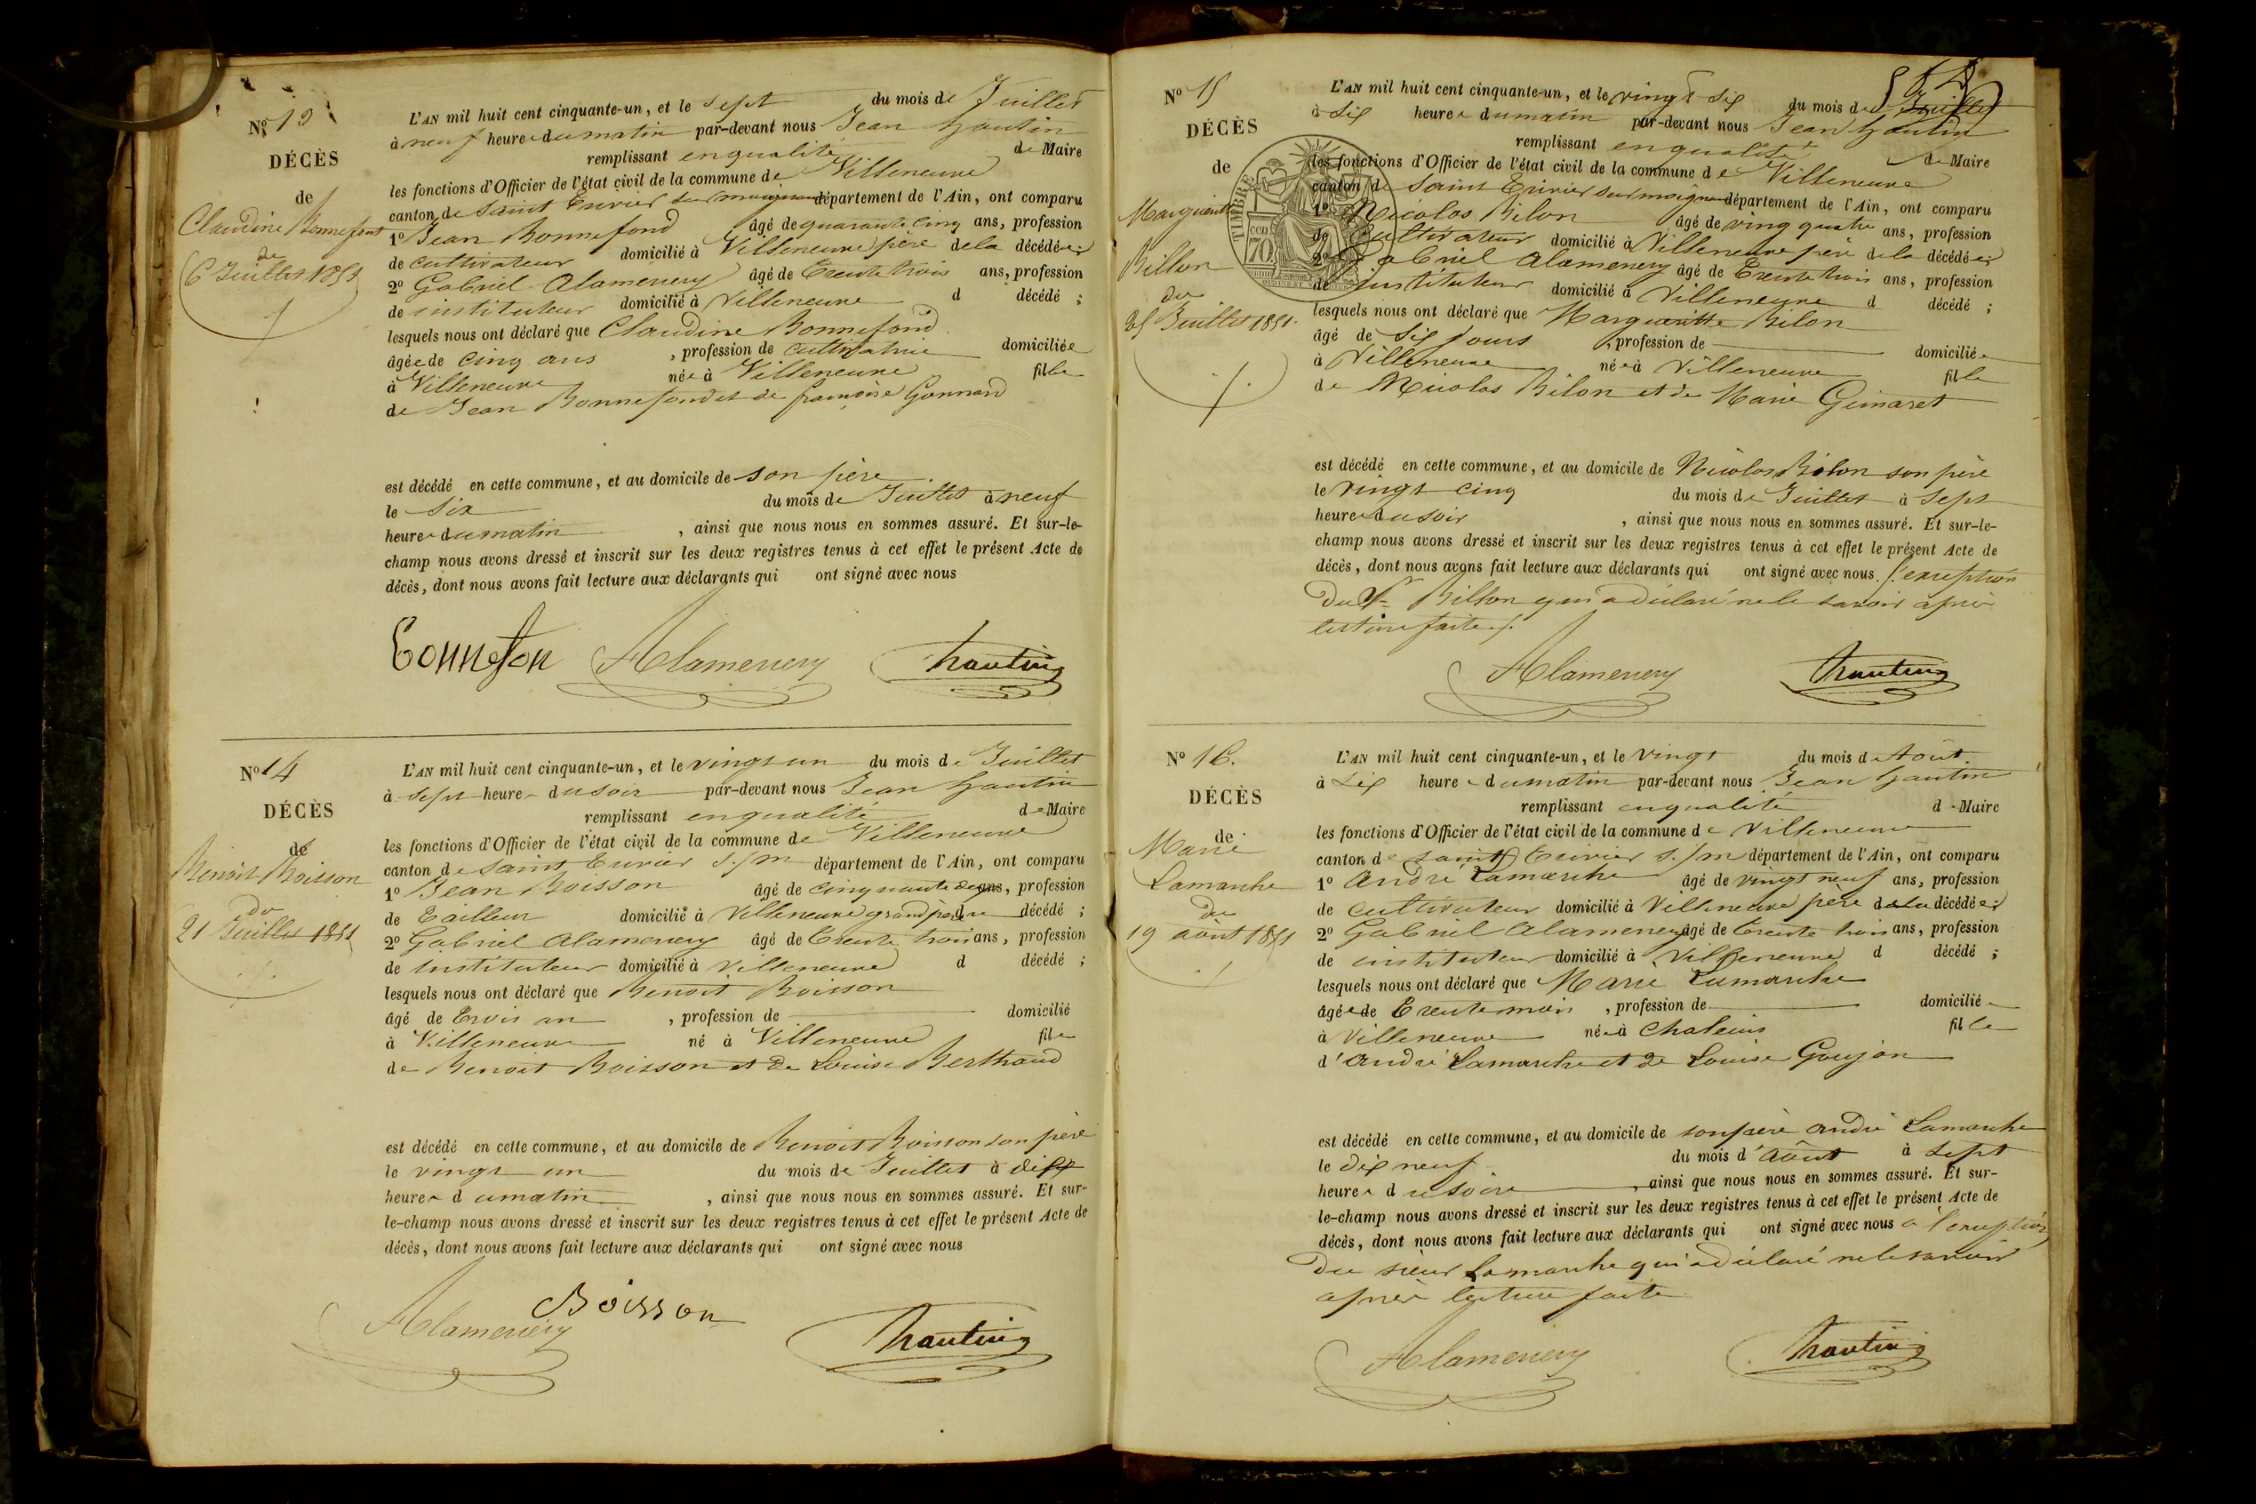 N° 13
DÉCÈS
de
Claudine Bonnefont
du
6 Juillet 1851
L'AN mil huit cent cinquante-un, et le sept du mois de Juillet
à neuf heures du matin par-devant nous Jean Hautin
remplissant en qualité de Maire
les fonctions d'Officier de l'état civil de la commune de Villeneuve
canton de Saint Trivier sur moignans département de l'Ain, ont comparu
1° Jean Bonnefond âgé de quarante cinq ans, profession
de cultivateur domicilié à Villeneuve père de la décédée;
2° Gabriel Alamenery âgé de Trente trois ans, profession
de instituteur domicilié à Villeneuve d décédé ;
lesquels nous ont déclaré que Claudine Bonnefond
âgée de cinq ans , profession de cultivatrice domiciliée
à Villeneuve née à Villeneuve fille
de Jean Bonnefond et de françoise Gonnard
est décédé en cette commune, et au domicile de son père
le Six du mois de Juillet à neuf
heures du matin , ainsi que nous nous en sommes assuré. Et sur-le-
champ nous avons dressé et inscrit sur les deux registres tenus à cet effet le présent Acte de
décès, dont nous avons fait lecture aux déclarants qui ont signé avec nous
Bonnefon Alamenery Hautin
N° 14
DÉCÈS
de
Benoit Boisson
du
21 Juillet 1851
L'AN mil huit cent cinquante-un, et le vingt un du mois de Juillet
à sept heures du soir par-devant nous Jean Hautin
remplissant en qualité de Maire
les fonctions d'Officier de l'état civil de la commune de Villeneuve
canton de Saint Trivier s./m département de l'Ain, ont comparu
1° Jean Boisson âgé de cinquante ans, profession
de Tailleur domicilié à Villeneuve grand père du décédé ;
2° Gabriel Alamenery âgé de Trente trois ans, profession
de instituteur domicilié à Villeneuve d décédé ;
lesquels nous ont déclaré que Benoit Boisson
âgé de Trois an , profession de domicilié
à Villeneuve né à Villeneuve fils
de Benoit Boisson et de Louise Berthaud
est décédé en cette commune, et au domicile de Benoit Boisson son père
le vingt un du mois de Juillet à dix
heures du matin , ainsi que nous nous en sommes assuré. Et sur-
le-champ nous avons dressé et inscrit sur les deux registres tenus à cet effet le présent Acte de
décès, dont nous avons fait lecture aux déclarants qui ont signé avec nous
Boisson
Alamenery Hautin
N° 15
DÉCÈS
de
Marguerite
Billon
du
25 Juillet 1851.
TIMBRE
70
L'AN mil huit cent cinquante-un, et le vingt six du mois de Juillet
à six heures du matin par-devant nous Jean Hautin
remplissant en qualité de Maire
les fonctions d'Officier de l'état civil de la commune de Villeneuve
canton de Saint Trivier sur moignans département de l'Ain, ont comparu
1° Nicolas Bilon âgé de vingt quatre ans, profession
de Cultivateur domicilié à Villeneuve père de la décédée;
2° Gabriel Alamenery âgé de Trente trois ans, profession
de instituteur domicilié à Villeneuve d décédé ;
lesquels nous ont déclaré que Marguerite Bilon
âgé de six jours , profession de domiciliée
à Villeneuve née à Villeneuve fille
de Nicolas Bilon et de Marie Gimaret
est décédé en cette commune, et au domicile de Nicolas Bilon son père
le vingt cinq du mois de Juillet à sept
heures du soir , ainsi que nous nous en sommes assuré. Et sur-le-
champ nous avons dressé et inscrit sur les deux registres tenus à cet effet le présent Acte de
décès, dont nous avons fait lecture aux déclarants qui ont signé avec nous. l'exception
du Sr Billon qui a déclaré ne le savoir après
lecture faite./.
Alamenery Hautin
N° 16.
DÉCÈS
de
Marie
Lamarche
du
19 août 1851
L'AN mil huit cent cinquante-un, et le vingt du mois d Août.
à six heures du matin par-devant nous Jean Hautin
remplissant en qualité de Maire
les fonctions d'Officier de l'état civil de la commune de Villeneuve
canton de saint Trivier s./m département de l'Ain, ont comparu
1° André Lamarche âgé de vingt neuf ans, profession
de cultivateur domicilié à Villeneuve père de la décédée;
2° Gabriel Alamenery âgé de trente trois ans, profession
de instituteur domicilié à Villeneuve d décédé ;
lesquels nous ont déclaré que Marie Lamarche
âgée de Trente mois , profession de domiciliée
à Villeneuve née à Chaleins fille
d'André Lamarche et de Louise Goujon
est décédé en cette commune, et au domicile de son père andré Lamarche
le dix neuf du mois d'Août à sept
heures du soir , ainsi que nous nous en sommes assuré. Et sur-
le-champ nous avons dressé et inscrit sur les deux registres tenus à cet effet le présent Acte de
décès, dont nous avons fait lecture aux déclarants qui ont signé avec nous a l'exception
du sieur Lamarche qui a déclaré ne le savoir
après lecture faite
Alamenery Hautin